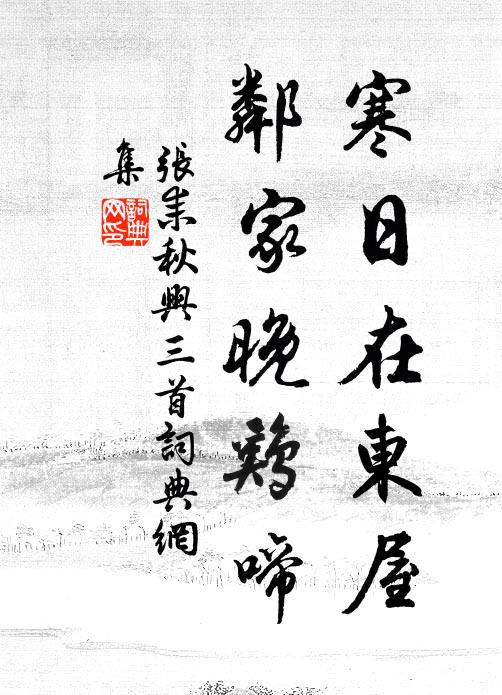 寒日在東屋
鄰家晚鷄啼
張耒秋興三首詞典網
集
詞典
网印